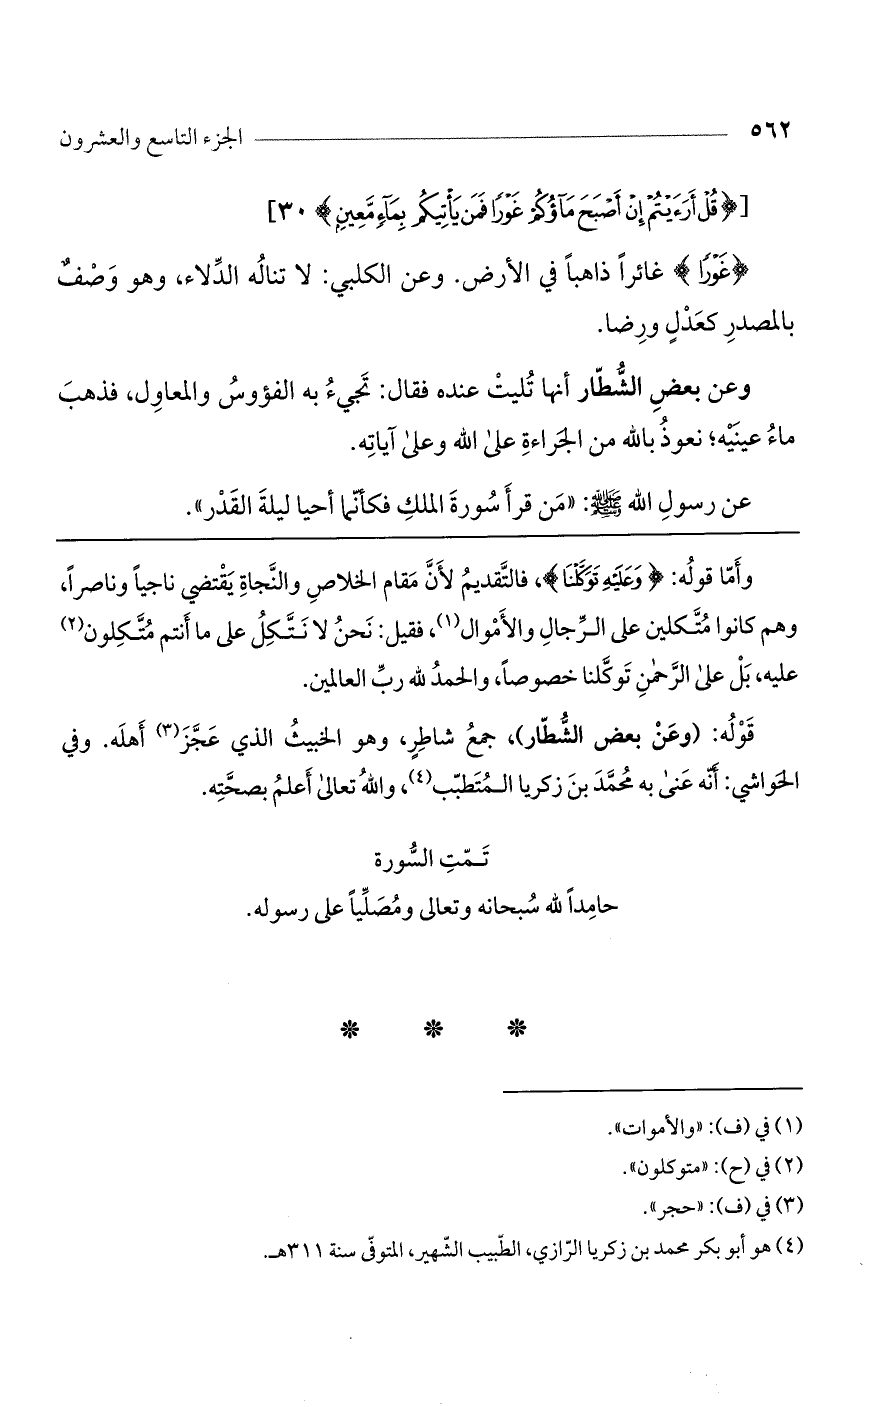 ٥٦٢ الجزء التاسع والعشرون
[﴿قُلْ أَرَءَيْتُمْ إِنْ أَصْبَحَ مَآؤُكُمْ غَوْرًا فَمَن يَأْتِيكُم بِمَآءٍ مَّعِينٍ﴾ ٣٠]
﴿غَوْرًا﴾ غائراً ذاهباً في الأرض. وعن الكلبي: لا تنالُه الدِّلاء، وهو وَصْفٌ
بالمصدرِ كعَدْلٍ ورِضا.
وعن بعضِ الشُّطّار أنها تُليتْ عنده فقال: تَجيءُ به الفؤوسُ والمعاوِل، فذهبَ
ماءُ عينَيْه؛ نعوذُ بالله من الجَراءةِ علىٰ الله وعلىٰ آياتِه.
عن رسولِ الله ﷺ: «مَن قرأَ سُورةَ الملكِ فكأنّما أحيا ليلةَ القَدْر».
وأَمّا قولُه: ﴿وَعَلَيْهِ تَوَكَّلْنَا﴾، فالتَّقديمُ لأنَّ مَقام الخلاصِ والنَّجاةِ يَقْتضي ناجياً وناصراً،
وهم كانوا مُتَّكلين على الرِّجالِ والأَمْوال(١)، فقيل: نَحنُ لا نَتَّكِلُ على ما أنتم مُتَّكِلون(٢)
عليه، بَلْ علىٰ الرَّحمٰنِ تَوكَّلنا خصوصاً، والحمدُ لله ربِّ العالمين.
قَوْلُه: (وعَنْ بعض الشُّطّار)، جمعُ شاطرٍ، وهو الخبيثُ الذي عَجَّزَ(٣) أَهلَه. وفي
الحَواشي: أنّه عَنىٰ به مُحمَّدَ بنَ زكريا المُتَطبّب(٤)، واللهُ تعالىٰ أعلمُ بصحَّتِه.
تَمّتِ السُّورة
حامِداً لله سُبحانه وتعالى ومُصَلِّياً على رسوله.
* * *
(١) في (ف): «والأموات».
(٢) في (ح): «متوكلون».
(٣) في (ف): «حجر».
(٤) هو أبو بكر محمد بن زكريا الرّازي، الطّبيب الشّهير، المتوفّى سنة ٣١١هـ.